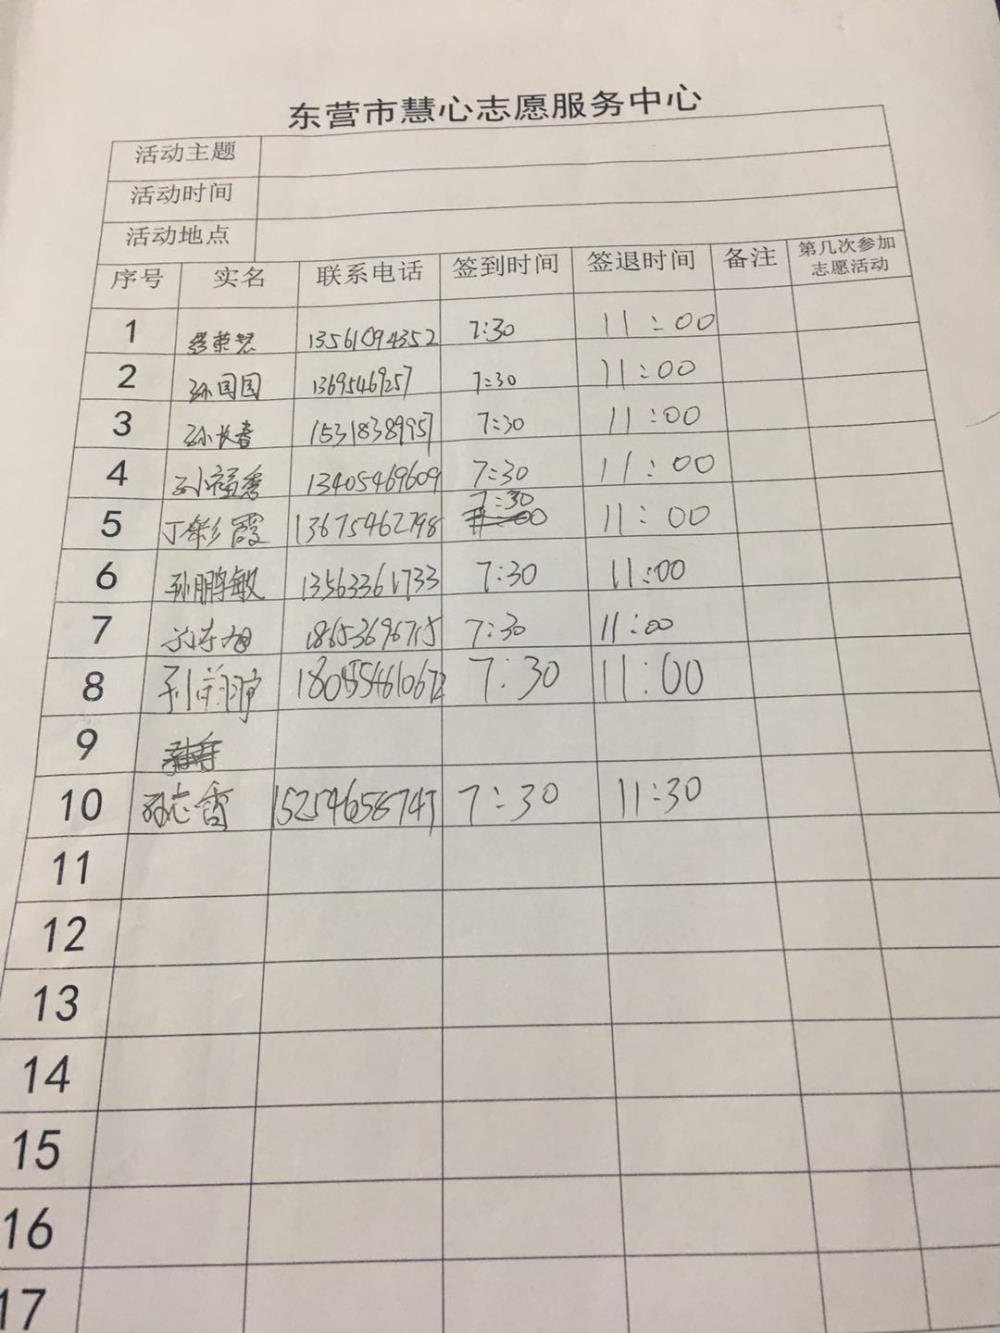 东营市慧心志愿服务中心
活动主题
活动时间
活动地点
序号 实名 联系电话 签到时间 签退时间 备注 第几次参加志愿活动
1 13561094352 7:30 11:00
2 孙国国 13695469257 7:30 11:00
3 孙长春 15318389957 7:30 11:00
4 孙福秀 13405469609 7:30 11:00
5 丁彩霞 13675462798 7:30 11:00
6 孙鹏敏 13563361733 7:30 11:00
7 18653696715 7:30 11:00
8 7:30 11:00
9
10 孙志香 7:30 11:30
11
12
13
14
15
16
17